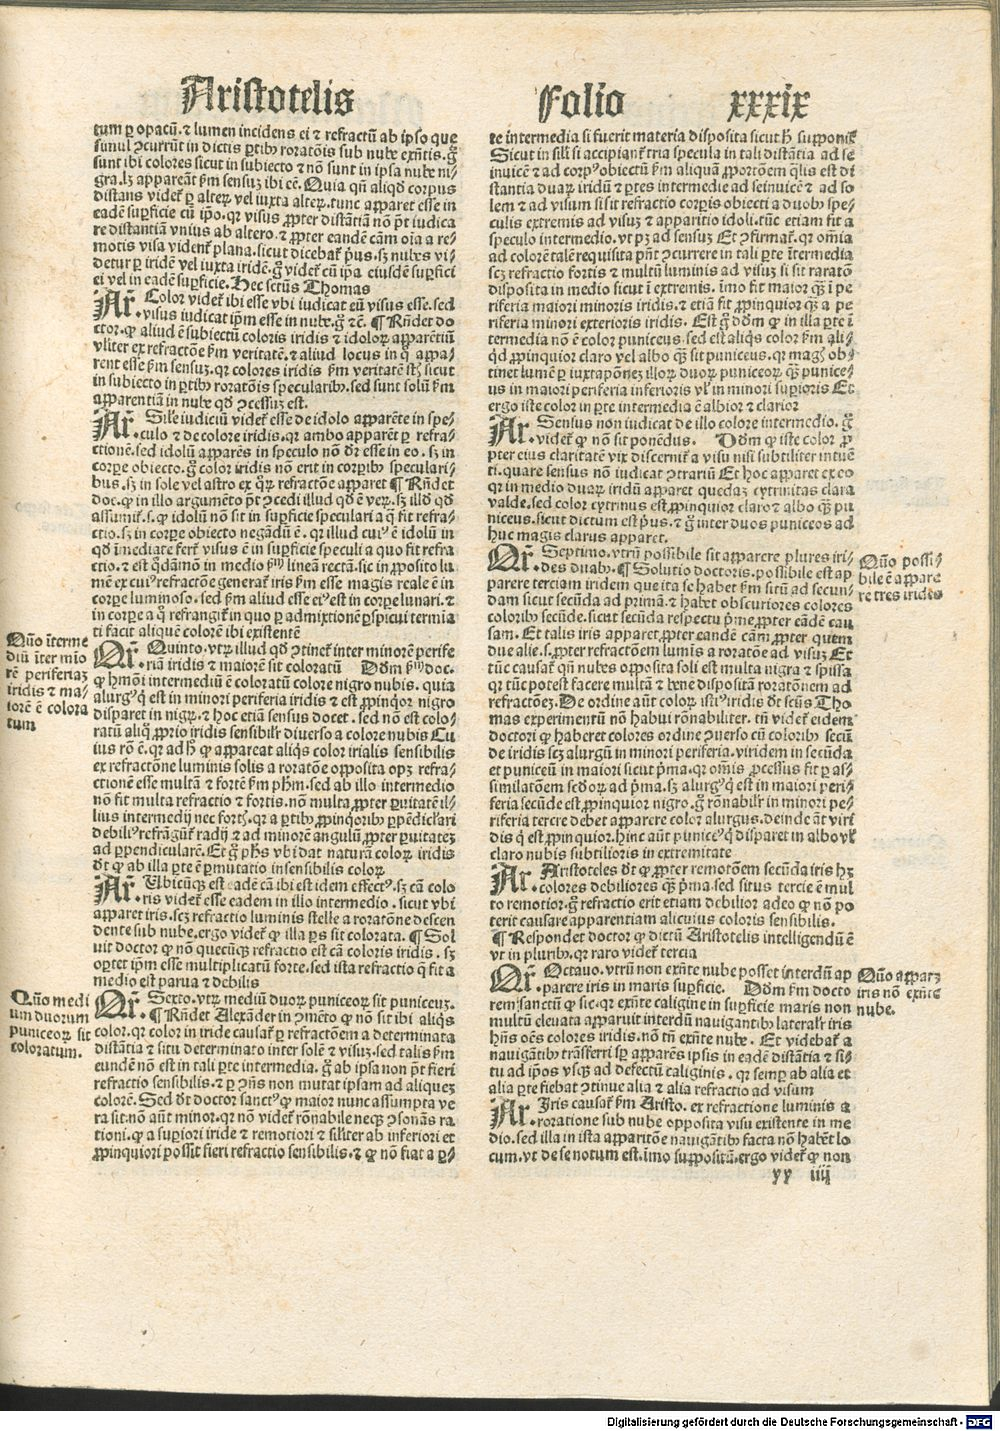 Aristotelis Folio xxxix
tum ꝑ opacū. ⁊ lumen incidens ei ⁊ refractū ab ipso que
simul ꝯcurrūt in dictis ꝑtibꝰ roratōis sub nube exn̄tis. gͦ
sunt ibi colores sicut in subiecto ⁊ nō sunt in ipsa nube ni/
gra. lꝫ appareāt ẜm sensuꝫ ibi eē. Quia qn̄ aliqd corpus
distans videt̄ ꝑ alteꝝ vel iuxta alteꝝ. tunc apparet esse in
eadē supficie cū ipo. qꝛ visus ꝓpter distātiā nō pōt iudica
re distantiā vnius ab altero. ⁊ ꝓpter eandē cām oīa a re/
motis visa vident̄ plana. sicut dicebat̄ pͥus. sꝫ nubes vi/
detur ꝑ iridē vel iuxta iridē. gͦ videt̄ cū ip̄a eiusdē supfici
ei vel in eadē supficie. Hec sctūs Thomas
Ar. Color videt̄ ibi esse vbi iudicat eū visus esse. sed
visus iudicat ip̄m esse in nube. gͦ ⁊c̄. ¶ Rn̄det do
ctor. ꝙ aliud ē subiectū coloris iridis ⁊ idoloꝝ apparētiū
vl̄iter ex refractōe ẜm veritatē. ⁊ aliud locus in qͦ appa/
rent esse ẜm sensuꝫ. qꝛ colores iridis ẜm veritatē st̄ sicut
in subiecto in ꝑtibꝰ roratōis speculariū. sed sunt solū ẜm
apparentiā in nube qd̄ ꝯcessuꝫ est.
Ar. Sil̄e iudiciū videt̄ esse de idolo apparēte in spe/
culo ⁊ de colore iridis. qꝛ ambo apparēt ꝑ refra/
ctionē. sed idolū apparēs in speculo nō dr̄ esse in eo. sꝫ in
corpe obiecto. gͦ color iridis nō erit in corpibꝰ speculari/
bus. sꝫ in sole vel astro ex qͦꝝ refractōe apparet ¶ Rn̄det
doc. ꝙ in illo argumēto pōt ꝯcedi illud qd̄ ē veꝝ. sꝫ illd̄ qd̄
assumit̄. s. ꝙ idolū nō sit in supficie speculari a qͣ fit refra/
ctio. sꝫ in corpe obiecto negādū ē. qꝛ illud cuiꝰ ē idolū in
qd̄ īmediate fert̄ visus ē in supficie speculi a quo fit refra
ctio. ⁊ est qd̄āmō in medio ẜm lineā rectā. sic in ꝓposito lu
mē ex cuiꝰ refractōe generat̄ iris ẜm esse magis reale ē in
corpe luminoso. sed ẜm aliud esse eiꝰ est in corpe lunari. ⁊ in
corpe a qͦ refrangit̄ in quo ꝑ admixtionē ꝑspicui termia
ti facit aliquē colorē ibi existentē
Qr̄. Quinto. vtꝝ illud qd̄ ꝯtinet̄ inter minorē perife
riā iridis ⁊ maiorē sit coloratū Dōm ẜm doc.
ꝙ hmōi intermediū ē coloratū colore nigro nubis. quia
alurgꝰ qͥ est in minori periferia iridis ⁊ est ꝓpinqͦor nigro
disparet in nigꝝ. ⁊ hoc etiā sensus docet. sed nō est colo/
ratū aliqͦ ꝓprio iridis sensibilr̄ diuerso a colore nubis Cu
ius rō ē. qꝛ ad hͦ ꝙ appareat aliqͥs color irialis sensibilis
ex refractōne luminis solis a roratōe opposita opꝫ refra/
ctionē esse multā ⁊ fortē ẜm pħm. sed ab illo intermedio
nō fit multa refractio ⁊ fortis. nō multa ꝓpter ꝑuitatē il/
lius intermedij nec fortꝭ. qꝛ a ꝑtibꝰ ꝓpinqͦoribꝰ ꝑpēdicl̄ari
debiliꝰ refrāgūt̄ radij ⁊ ad minorē angulū ꝓpter ꝑuitateꝫ
ad ꝑpendicularē. Et gͦ pħs vbi dat naturā coloꝝ iridis
dt̄ ꝙ ab illa ꝑte ē ꝑmutatio insensibilis coloꝝ
Ar. Ubicūqꝫ est eadē cā ibi est idem effectꝰ. sꝫ cā colo
ris videt̄ esse eadem in illo intermedio. sicut vbi
apparet iris. scꝫ refractio luminis stelle a roratōne descen
dente sub nube. ergo videt̄ ꝙ illa ꝑs sit colorata. ¶ Sol
uit doctor ꝙ nō quecūqꝫ refractio est cā coloris iridis. sꝫ
oꝑtet ip̄m esse multiplicatū forte. sed ista refractio qͣ fit a
medio est parua ⁊ debilis
Qr̄. Sexto. vtꝝ mediū duoꝝ puniceoꝝ sit puniceuꝫ.
¶ Rn̄det Alexāder in ꝯmēto ꝙ nō sit ibi aliqͥs
color. qꝛ color in iride causat̄ ꝑ refractōem a determinata
distātia ⁊ situ determinato inter solē ⁊ visuꝫ. sed talis ẜm
eundē nō est in tali ꝑte intermedia. gͦ ab ipsa non pōt fieri
refractio sensibilis. ⁊ ꝑ ꝯn̄s non mutat ipsam ad aliqueꝫ
colorē. Sed dt̄ doctor sanctꝰ ꝙ maior nunc assumpta ve
ra sit. nō aūt minor. qꝛ nō videt̄ rōnabile neqꝫ ꝯsonās ra
tioni. ꝙ a supiori iride ⁊ remotiori ⁊ sil̄iter ab inferiori et
ꝓpinquiori possit fieri refractio sensibilis. ⁊ ꝙ nō fiat a ꝑ/
Qn̄o īterme
diū īter mīo
rē periferiaꝫ
iridis ⁊ ma/
iorē ē colora
tum
Qn̄o medi
um duorum
puniceoꝝ sit
coloratum.
te intermedia si fuerit materia disposita sicut hͦ supponit̄
Sicut in sil̄i si accipiant̄ tria specula in tali distātia ad se
inuicē ⁊ ad corpꝰ obiectū ẜm aliquā ꝓportōem qͣlis est di
stantia duaꝝ iridū ⁊ ꝑtes intermedie ad seinuicē ⁊ ad so
lem ⁊ ad visum si sit refractio corpis obiecti a duobꝰ spe/
culis extremis ad visuꝫ ⁊ apparitio idoli. tūc etiam fit a
speculo intermedio. vt pꝫ ad sensuꝫ Et ꝯfirmat̄. qꝛ om̄ia
ad colorē talē requisita pn̄t ꝯcurrere in tali ꝑte ītermedia
scꝫ refractio fortis ⁊ multū luminis ad visuꝫ si sit raratō
disposita in medio sicut ī extremis. īmo fit maior qͣꝫ ī pe
riferia maiori minoris iridis. ⁊ etiā fit ꝓpinquior qͣꝫ a pe
riferia minori exterioris iridis. Est gͦ dōm ꝙ in illa ꝑte ī
termedia nō ē color puniceus. sed est aliqͥs color ẜm ali/
qd̄ ꝓpinquior claro vel albo qͣꝫ sit puniceus. qꝛ magꝭ ob/
tinet lumē ꝑ iuxtapōnez illoꝝ duoꝝ puniceoꝝ qͣꝫ punice/
us in maiori periferia inferioris vl̄ in minori supioris Et
ergo iste color in ꝑte intermedia ē albior ⁊ clarior
Ar. Sensus non iudicat de illo colore intermedio. gͦ
videt̄ ꝙ nō sit ponēdus. Dōm ꝙ iste color ꝓ
pter eius claritatē vix discernit̄ a visu nisi subtiliter intuē
ti. quare sensus nō iudicat ꝯtrariū Et hoc apparet ex eo
qꝛ in medio duaꝝ iridū apparet quedaꝫ cytrinitas clara
valde. sed color cytrinus est ꝓpinquior claro ⁊ albo qͣꝫ pu
niceus. sicut dictum est pͥus. ⁊ gͦ inter duos puniceos ad
huc magis clarus apparet.
Qr̄. Septimo. vtrū possibile sit apparere plures iri/
des duabꝰ. ¶ Solutio doctoris. possibile est ap
parere terciam iridem que ita se habet ẜm situ ad secun/
dam sicut secūda ad primā. ⁊ habet obscuriores colores
coloribꝰ secūde. sicut secūda respectu pͥme ꝓpter eādē cau
sam. Et talis iris apparet ꝓpter eandē cām ꝓpter quem
due alie. s. ꝓpter refractōem lumīs a roratōe ad visuꝫ Et
tūc causat̄ qn̄ nubes opposita soli est multa nigra ⁊ spissa
qꝛ tūc potest facere multā ⁊ bene dispositā roratōnem ad
refractōez. De ordine aūt coloꝝ istiꝰ iridis dt̄ sctūs Tho
mas experimentū nō habui rōnabiliter. tn̄ videt̄ eidem
doctori ꝙ haberet colores ordine ꝯuerso cū coloribꝰ secū
de iridis scꝫ alurgū in minori periferia. viridem in secūda
et puniceū in maiori sicut pͥma. qꝛ om̄is ꝓcessus fit ꝑ as/
similatōem scd̄oꝝ ad pͥma. sꝫ alurgꝰ qͥ est in maiori peri/
feria secūde est ꝓpinquior nigro. gͦ rōnabilr̄ in minori pe/
riferia tercie debet apparere color alurgus. deinde āt viri
dis qͥ est ꝓpinquior. hinc aūt puniceꝰ qͥ disparet in albo vl̄
claro nubis subtilioris in extremitate
Ar. Aristoteles dt̄ ꝙ ꝓpter remotōem secūda iris hꝫ
colores debiliores qͣꝫ pͥma. sed situs tercie ē mul
to remotior. gͦ refractio erit etiam debilior adeo ꝙ nō po
terit causare apparentiam alicuius coloris sensibilis.
¶ Respondet doctor ꝙ dictū Aristotelis intelligendū ē
vt in pluribꝰ. qꝛ raro videt̄ tercia
Qr̄. Octauo. vtrū non exn̄te nube posset interdū ap
parere iris in maris supficie. Dōm ẜm docto
rem sanctū ꝙ sic. qꝛ exn̄te caligine in supficie maris non
multū eleuata apparuit interdū nauigantibꝰ lateralr̄ iris
hn̄s oēs colores iridis. nō tn̄ exn̄te nube. Et videbat̄ a
nauigātibꝰ trāsferri sp̄ apparēs ipsis in eadē distātia ⁊ si/
tu ad ipos vsqꝫ ad defectū caliginis. qꝛ semp ab alia et
alia ꝑte fiebat ꝯtinue alia ⁊ alia refractio ad visum
Ar. Iris causat̄ ẜm Aristo. ex refractione luminis a
roratione sub nube opposita visu existente in me
dio. sed illa in ista apparitōe nauigātibꝰ facta nō habēt lo
cum. vt de se notum est. īmo suppositū. ergo videt̄ ꝙ non
Qn̄o possi/
bile ē appare
re tres irides
Qn̄o apparꝫ
iris nō exn̄te
nube.
yy iiij
Digitalisierung gefördert durch die Deutsche Forschungsgemeinschaft - DFG